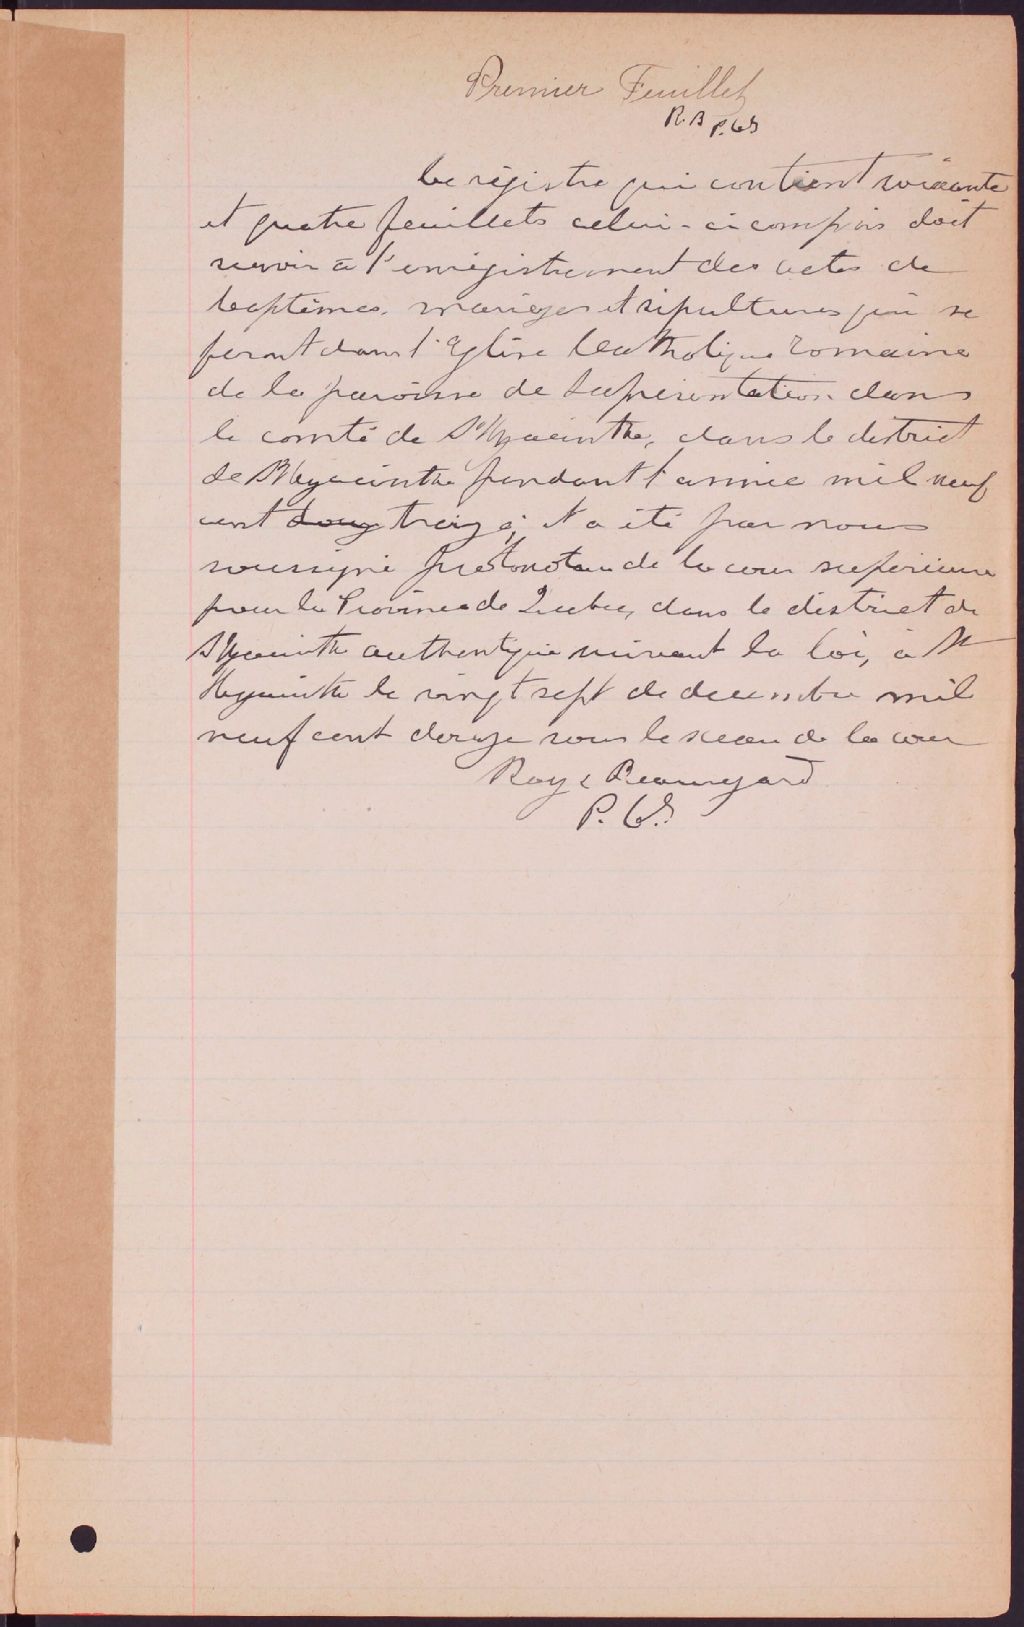 Premier Feuillet
R. B P.C.S
Ce régistre qui contient soixante
et quatre feuillets celui-ci compris doit
servir à l'enrégistrement des actes de
baptêmes, mariages et sépultures qui se
feront dans l'Eglise Catholique romaine
de la paroisse de La présentation dans
le comté de St Hyacinthe, dans le district
de St Hyacinthe pendant l'année mil neuf
cent douze treize; et a été par nous
soussigné protonotaire de la cour supérieure
pour la Province de Quebec, dans le district de
St Hyacinthe authentiqué suivant la loi, à St
Hyacinthe le vingt sept de decembre mil
neuf cent douze sous le sceau de la cour
Roy & Beauregard
P. C.S.